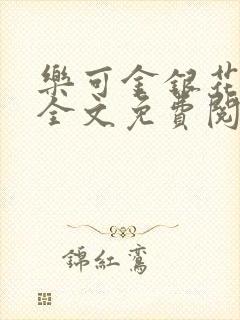 樂可金銀花
全文免費閱
錦紅鸞